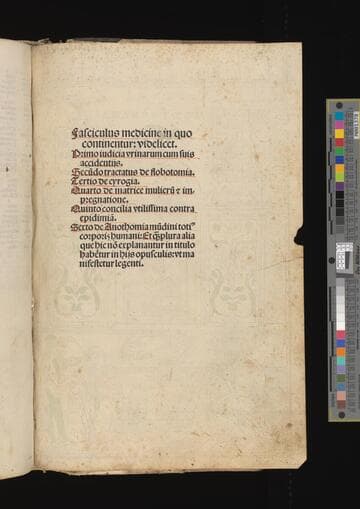 Fasciculus medicine in quo
continentur: videlicet.
Primo iudicia vrinarum cum suis
accidentijs.
Secūdo tractatus de flobotomia.
Tertio de cyrogia.
Quarto de matrice mulierū et im
pregnatione.
Quinto concilia vtilissima contra
epidimiā.
Sexto de Anothomia mūdini toti⁹
corporis humani: Et q̄plura alia
que hic nō explanantur in titulo
habētur in hijs opusculis: vt ma
nifestetur legenti.